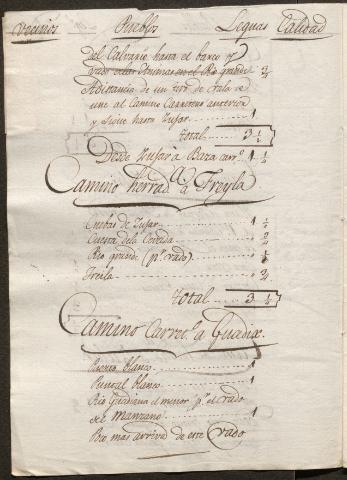 Vecinos Pueblos Leguas Calidad
del Calvario hasta el barco y
vado en el Rio grande ¾
A distancia de un tiro de vala se
une al Camino Carretero anterior
y sigue hasta Zujar 1
total 3 ½
Desde Zujar à Baza carr.º 1 ½
Camino herrad.º à Freyla
Cuebas de Zujar 1 ½
Cuesta de la 
Rio grande (p.r vado)
Freila ¾
total 3 ½
Camino Carret.º a Guadix
Puerto blanco 1
Puntal blanco 1
Rio Guadiana el menor p.r el vado
del manzano 1
Rio mas arriva de este vado